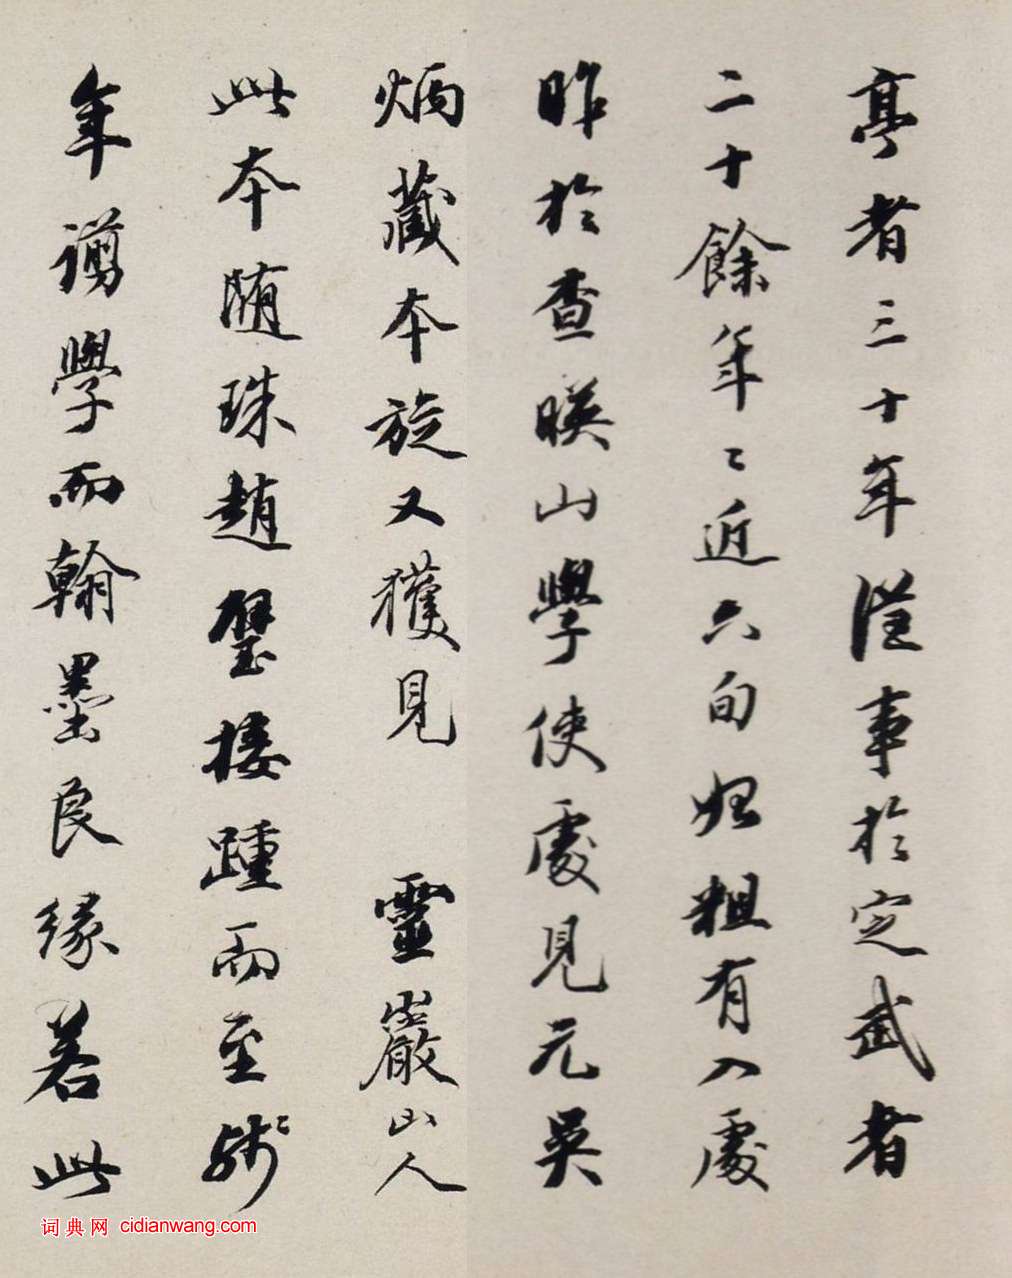 亭者三十年從事於定武者
二十餘年〻近六旬始粗有入處
昨於查暎山學使處見元吳
炳藏本旋又獲見 靈巖山人
此本随珠趙璧接踵而至殘
年謭學而翰墨良緣若此
词典网 cidianwang.com